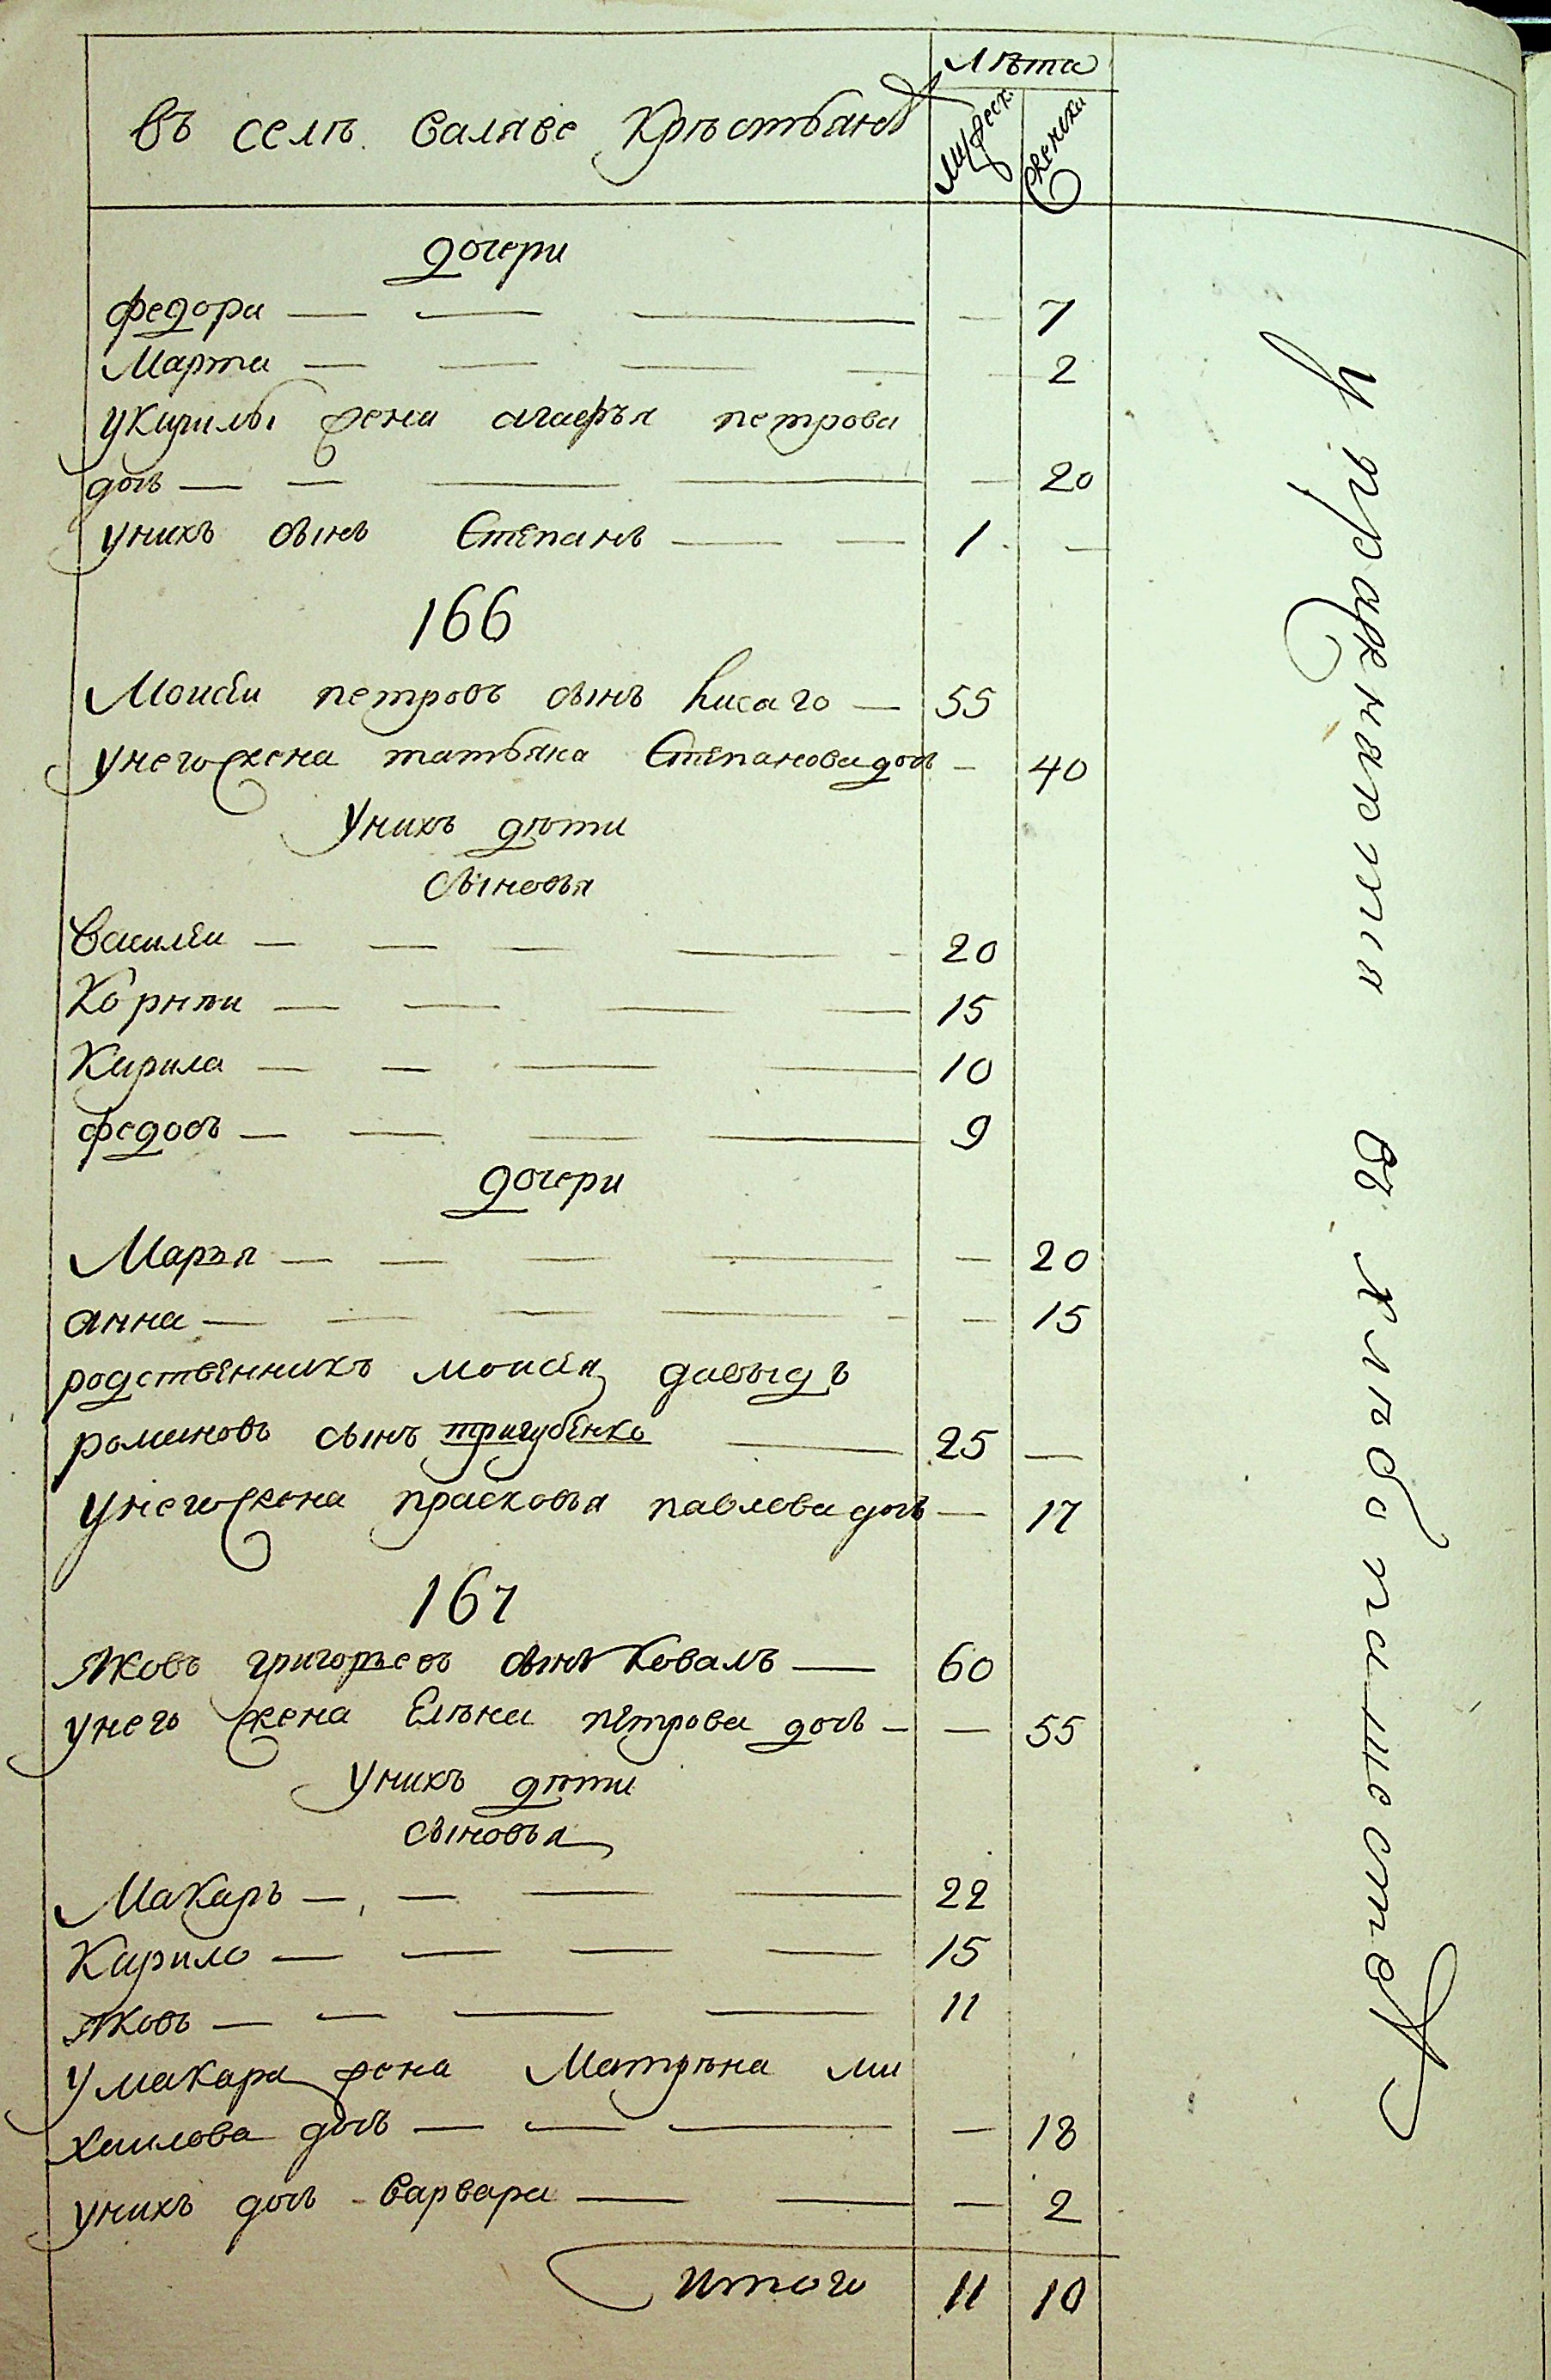 Лѣта
въ селѣ валяве Крѣстьянъ
мужеск:
женска
дочери
федора — — — — 7
Марта — — — — — 2
укирилы жена агафья петрова
дочь — — — — — 20
унихъ сынъ Степанъ — — 1 —
166
Моисѣи петровъ сынъ кисаго — 55
унего жена татьяна Степанова дочь — 40
Унихъ дѣти
Сыновья
Василѣи — — — — — 20
Корнѣи — — — — 15
Кирила — — — — 10
федосъ — — — — 9
дочери
Марья — — — — — 20
анна — — — — — — 15
родственникъ моисѣя давыдъ
романовъ сынъ тригубенко — 25 —
унего жена прасковья павлова дочь — 17
167
Яковъ григорьевъ сынъ Коваль — 60
унего жена Елѣна петрова дочь — — 55
Унихъ дѣти
сыновья
Макаръ — — — — 22
Кирило — — — — 15
Яковъ — — — — 11
у макара жена Матрѣна ми
хаилова дочь — — — — 18
унихъ дочь варвара — — — 2
Итого 11 10